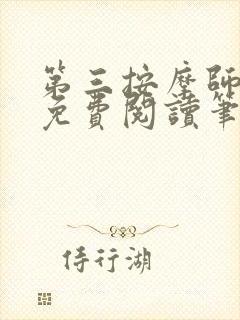 第三按摩師
免費閱讀筆
侍行湖